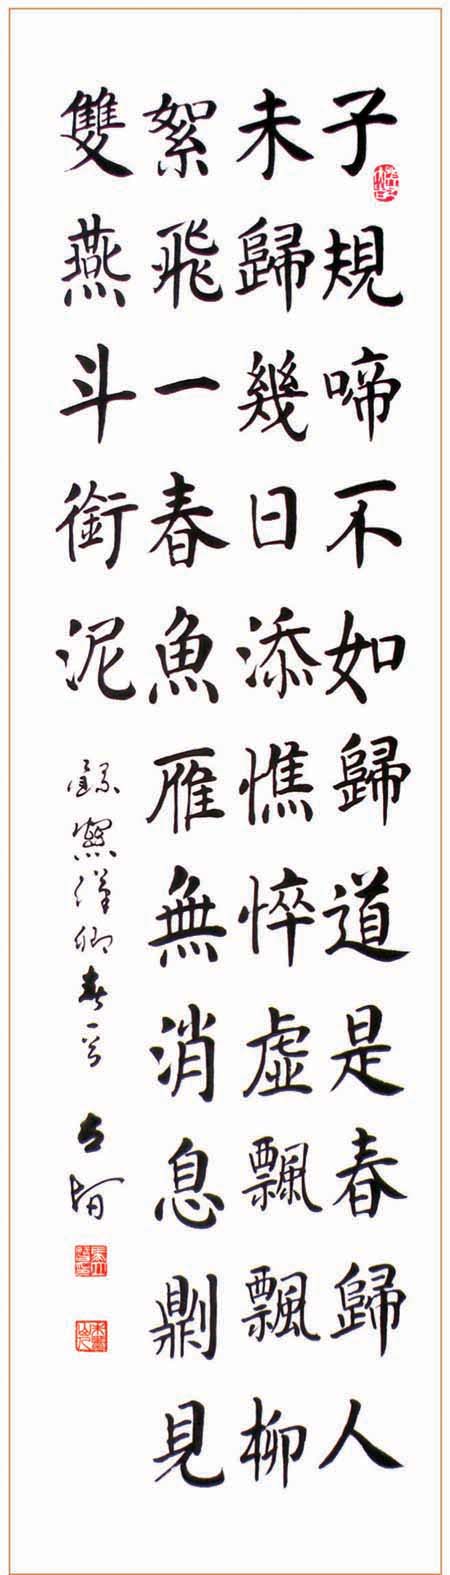 子規啼不如歸道是春歸人
未歸幾日添憔悴虛飄飄柳
絮飛一春魚雁無消息則見
雙燕斗銜泥
錄關漢卿春